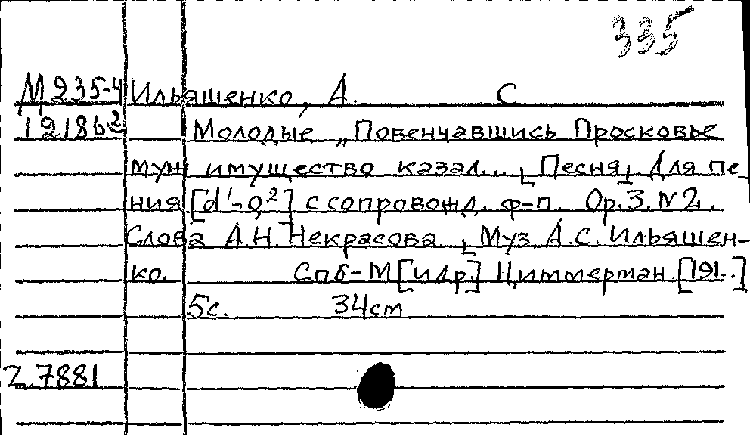 335
М 235-4 Ильяшенко, А. С
12186² Молодые „Повенчавшись Просковье
муж имущество казал..." [Песня] Для пе-
ния [d'-a²] с сопровожд. ф-п. Ор. 3. N2.
Слова А.Н. Некрасова, Муз А.С. Ильяшен-
ко. Спб-М [и др.] Циммерман [191..]
5с. 34cm
27881